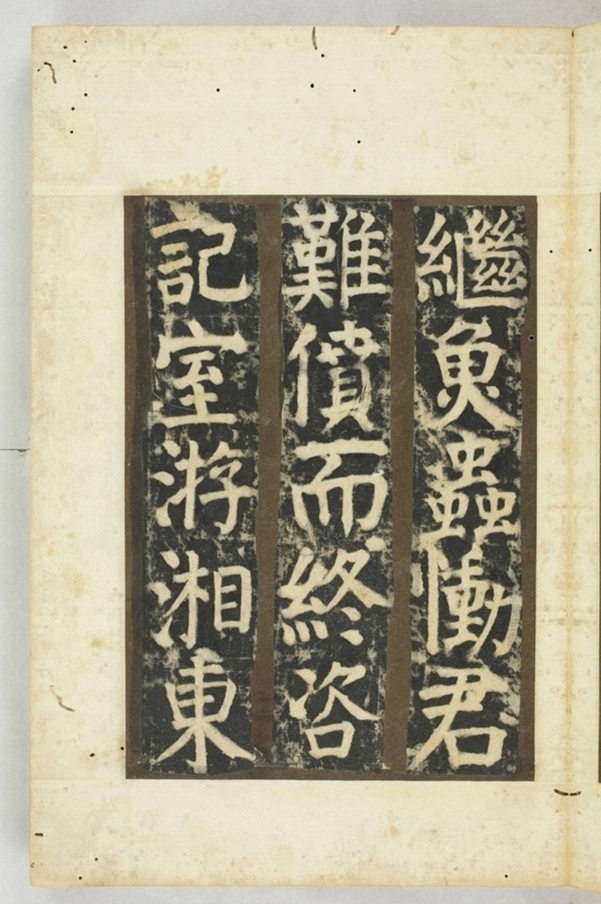 繼魚蟲慟君
難償而終咨
記室游湘東